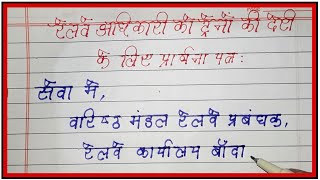 रेलवे अधिकारी को ट्रेनों की देरी
के लिए प्रार्थना पत्र:
सेवा में,
वरिष्ठ मंडल रेलवे प्रबंधक,
रेलवे कार्यालय बाँदा